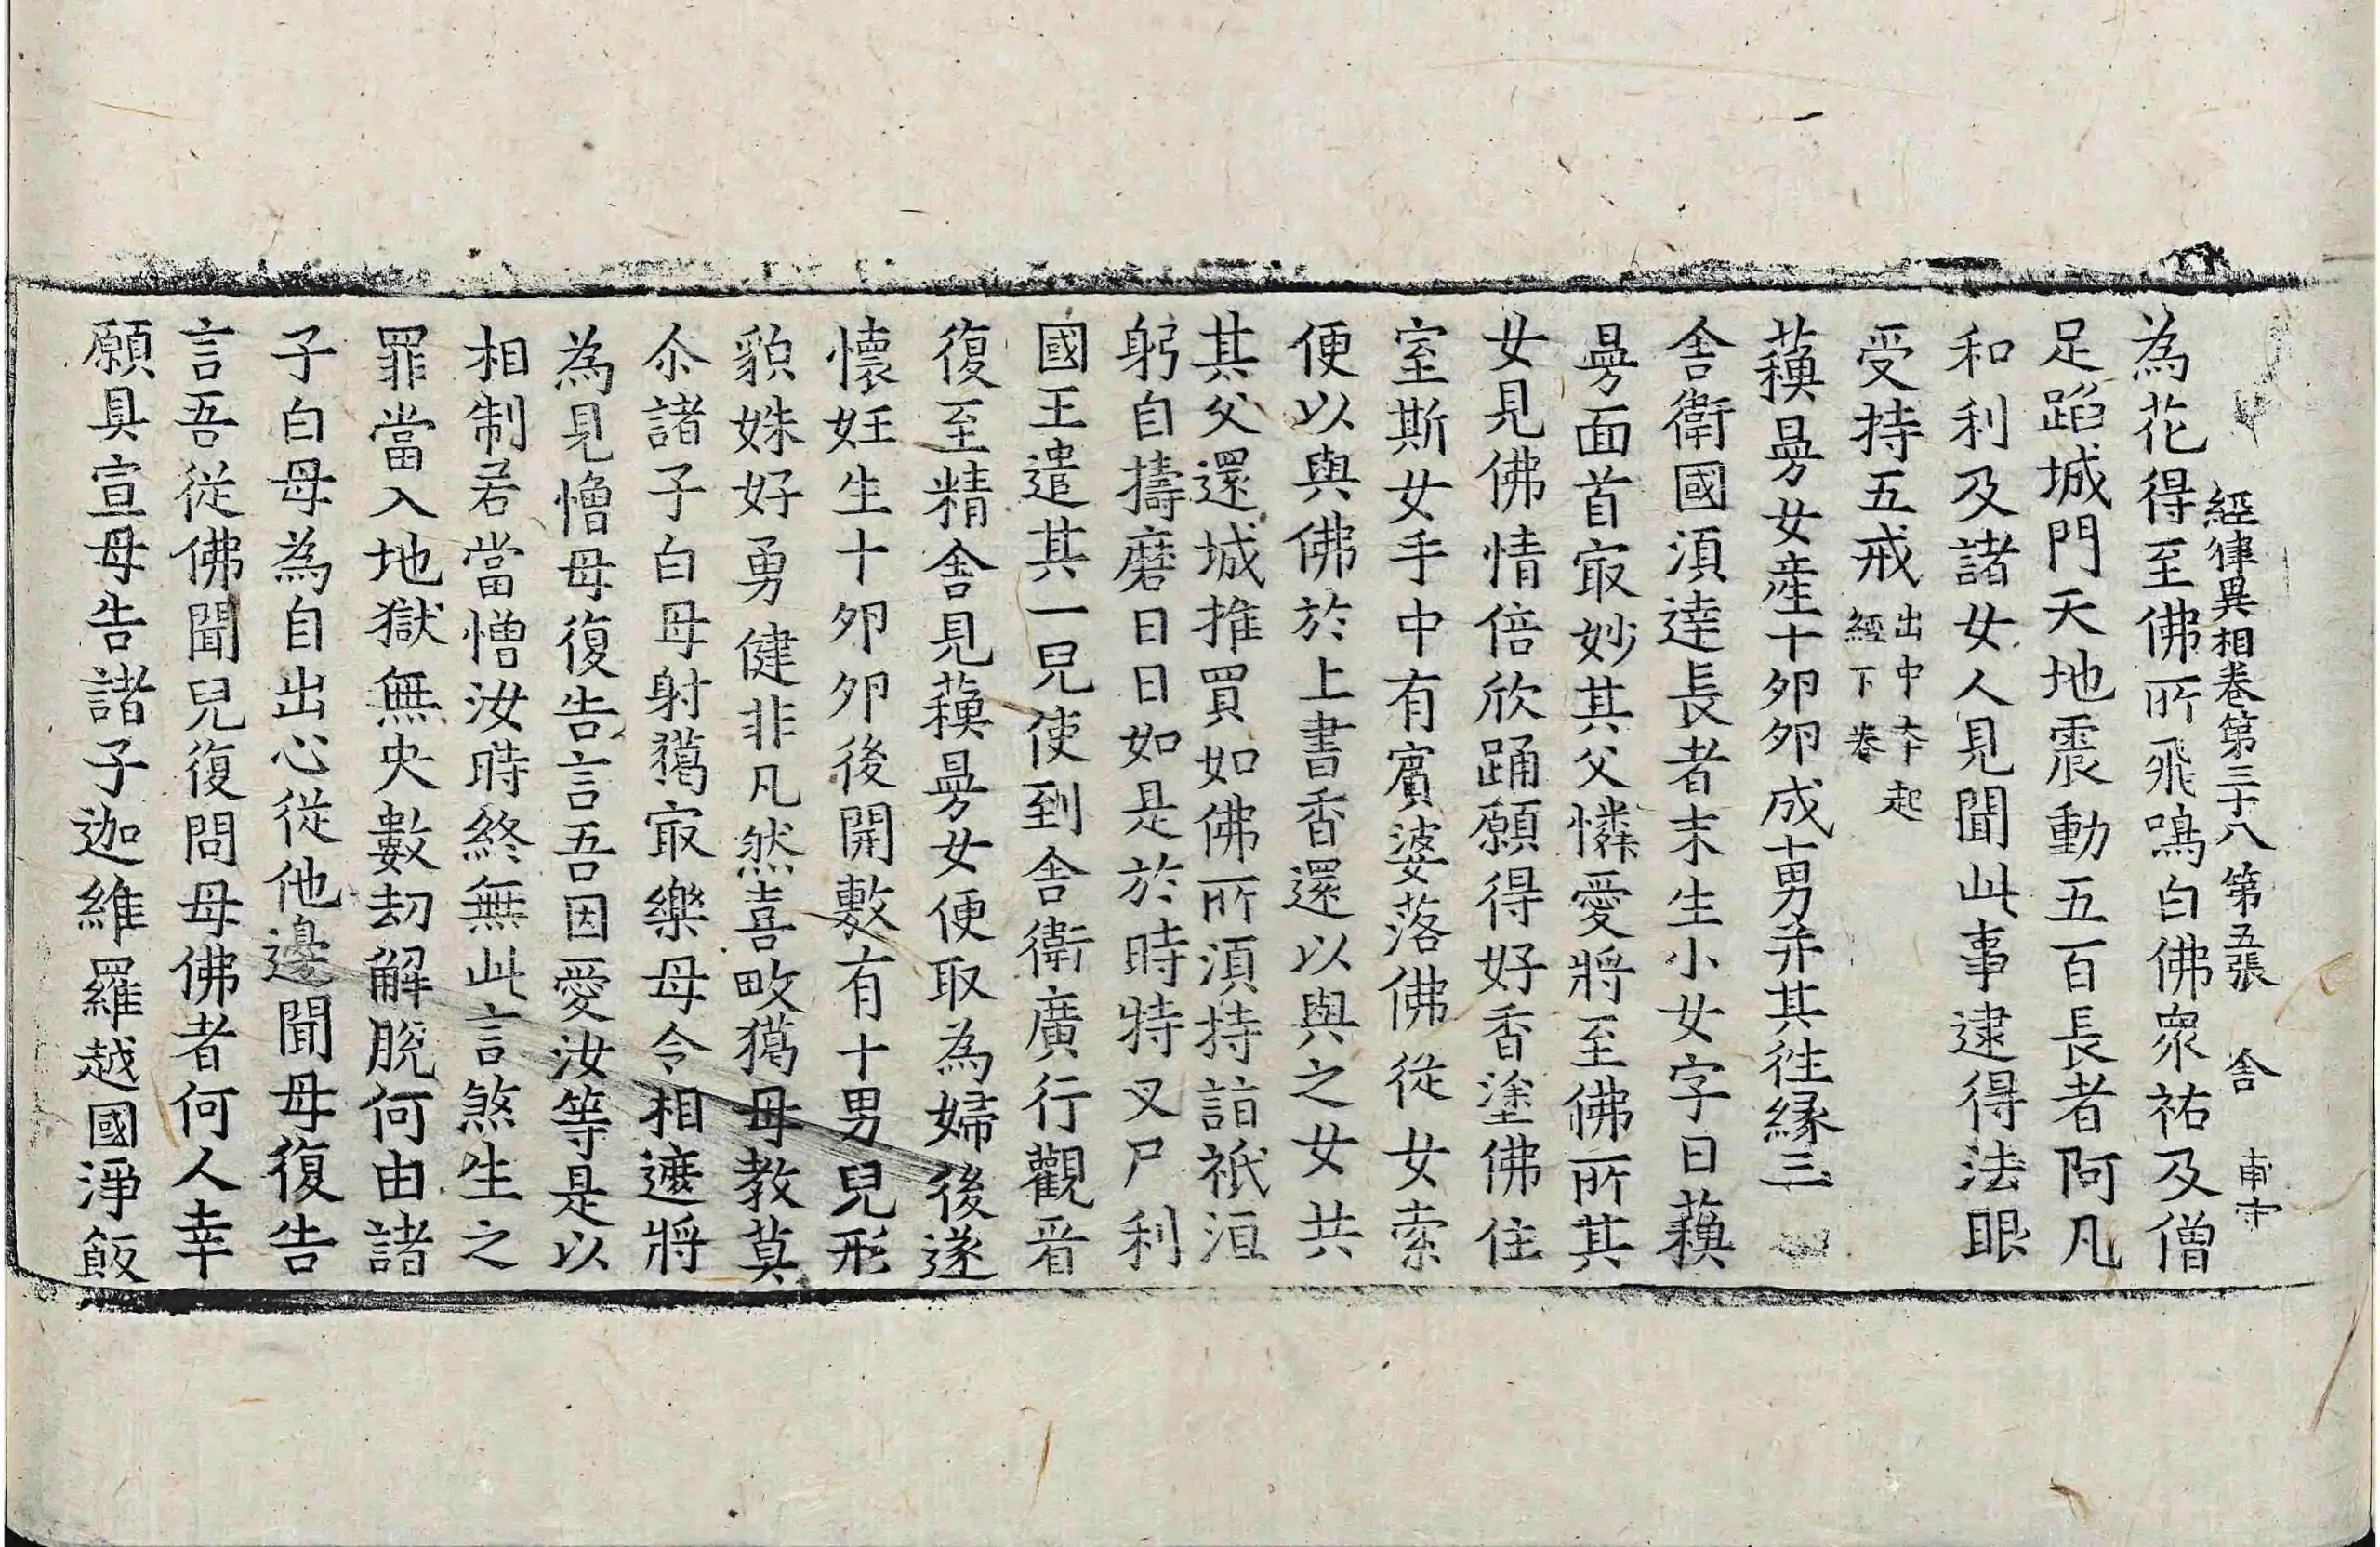 為花得至佛所飛鳴白佛衆祐及僧
經律異相卷第三十八 第五張 舎
足蹈城門天地震動五百長者阿凡
和利及諸女人見聞此事逮得法眼
受持五戒出中本起經下卷
蘓曼女產十卵卵成十男并其往縁三
舎衛國湏達長者末生小女字曰蘓
曼面首㝡妙其父憐愛將至佛所其
女見佛情倍欣踊願得好香塗佛住
室斯女手中有賔婆落佛從女索
便以與佛於上書香還以與之女共
其父還城推買如佛所湏持詣祇洹
躬自擣磨日日如是於時特叉尸利
國王遣其一兒使到舎衛廣行觀㸔
復至精舎見蘓曼女便取為婦後遂
懷妊生十卵卵後開敷有十男兒形
貌姝好勇健非凡然喜畋獦母教莫
尒諸子白母射獦㝡樂母今相遮將
為見憎母復告言吾因愛汝等是以
相制若當憎汝時終無此言煞生之
罪當入地獄無央數劫解脫何由諸
子白母為自出心從他邊聞母復告
言吾從佛聞兒復問母佛者何人幸
願具宣母告諸子迦維羅越國淨飯